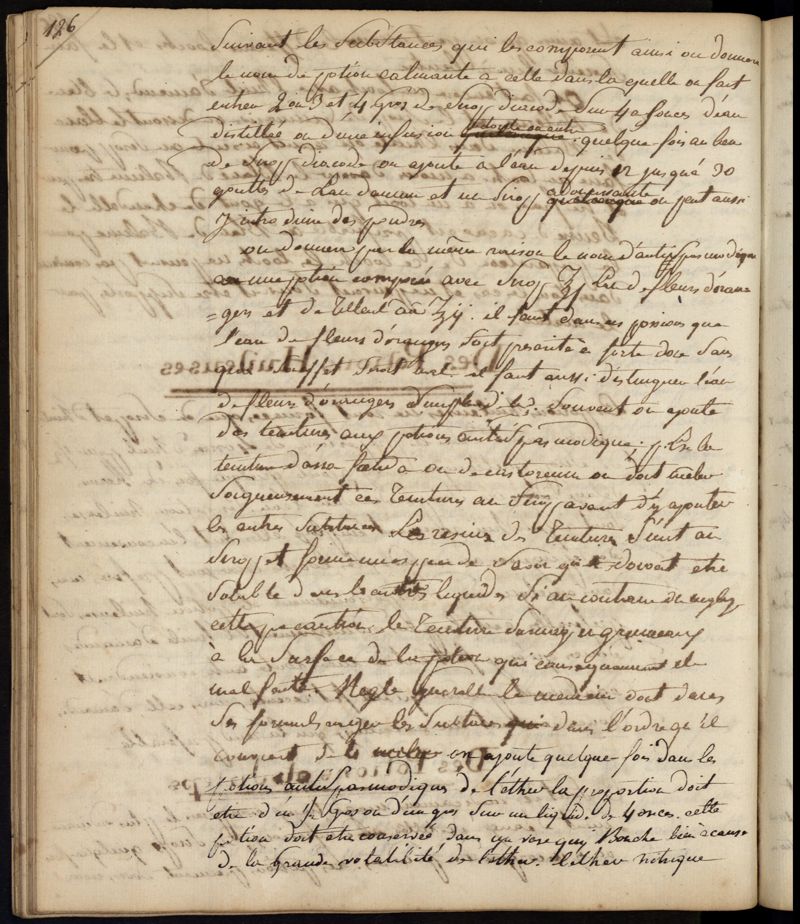 126
Suivant les Substances qui les composent ainsi on donne
le nom de potion calmante a celle dans la quelle on fait
entrer 2 ou 3 et 4 Gros de Sirop diacode Sur 4 onces d'eau
distillée ou d'une infusion quelque fois au lieu
de Sirop diacode on ajoute a l'eau depuis 12 jusqué 30
gouttes de Laudanum et un Sirop adoucissante on peut aussi
y introduire des poudres
on donne par la même raison le nom d'antispasmodique
a une potion composée avec Sirop ʒj Eau de fleurs d'oran
=gers et de Tilleul āā ʒij. il faut dans ces potions que
l'eau de fleurs d'oranges Soit prescrite a forte dose Sans
quoi l'effet Seroit nul il faut aussi distinguer l'eau
de fleurs d'orangers Simple d. Souvent on ajoute
des teintures aux potions antispasmodique; la
teinture d'assa foetida ou de castoreum on doit meler
Soigneusement ces Teintures au Sirop avant d'y ajouter
les autres Substances Les resines des Teintures S'unit au
Sirop et forme une espece de Savon qui devoit etre
Soluble dans les autres liquides Si au contraire on neglige
cette precaution le Teinture Surnage en grumeaux
à la Surface de la potion qui consequemment est
mal faite. Regle generale le medecin doit dans
Ses formules ranger les Substances dans l'ordre qu'il
convient de les meler on ajoute quelque fois dans les
potions antispasmodiques de l'ether la proportion doit
etre d'un ½ Gros ou d'un gros Sur un liquide de 4 onces. cette
potion doit etre conservée dans un vase qui Bouche bien a cause
de la Grande volatilité de l'ether. l'ether nitrique